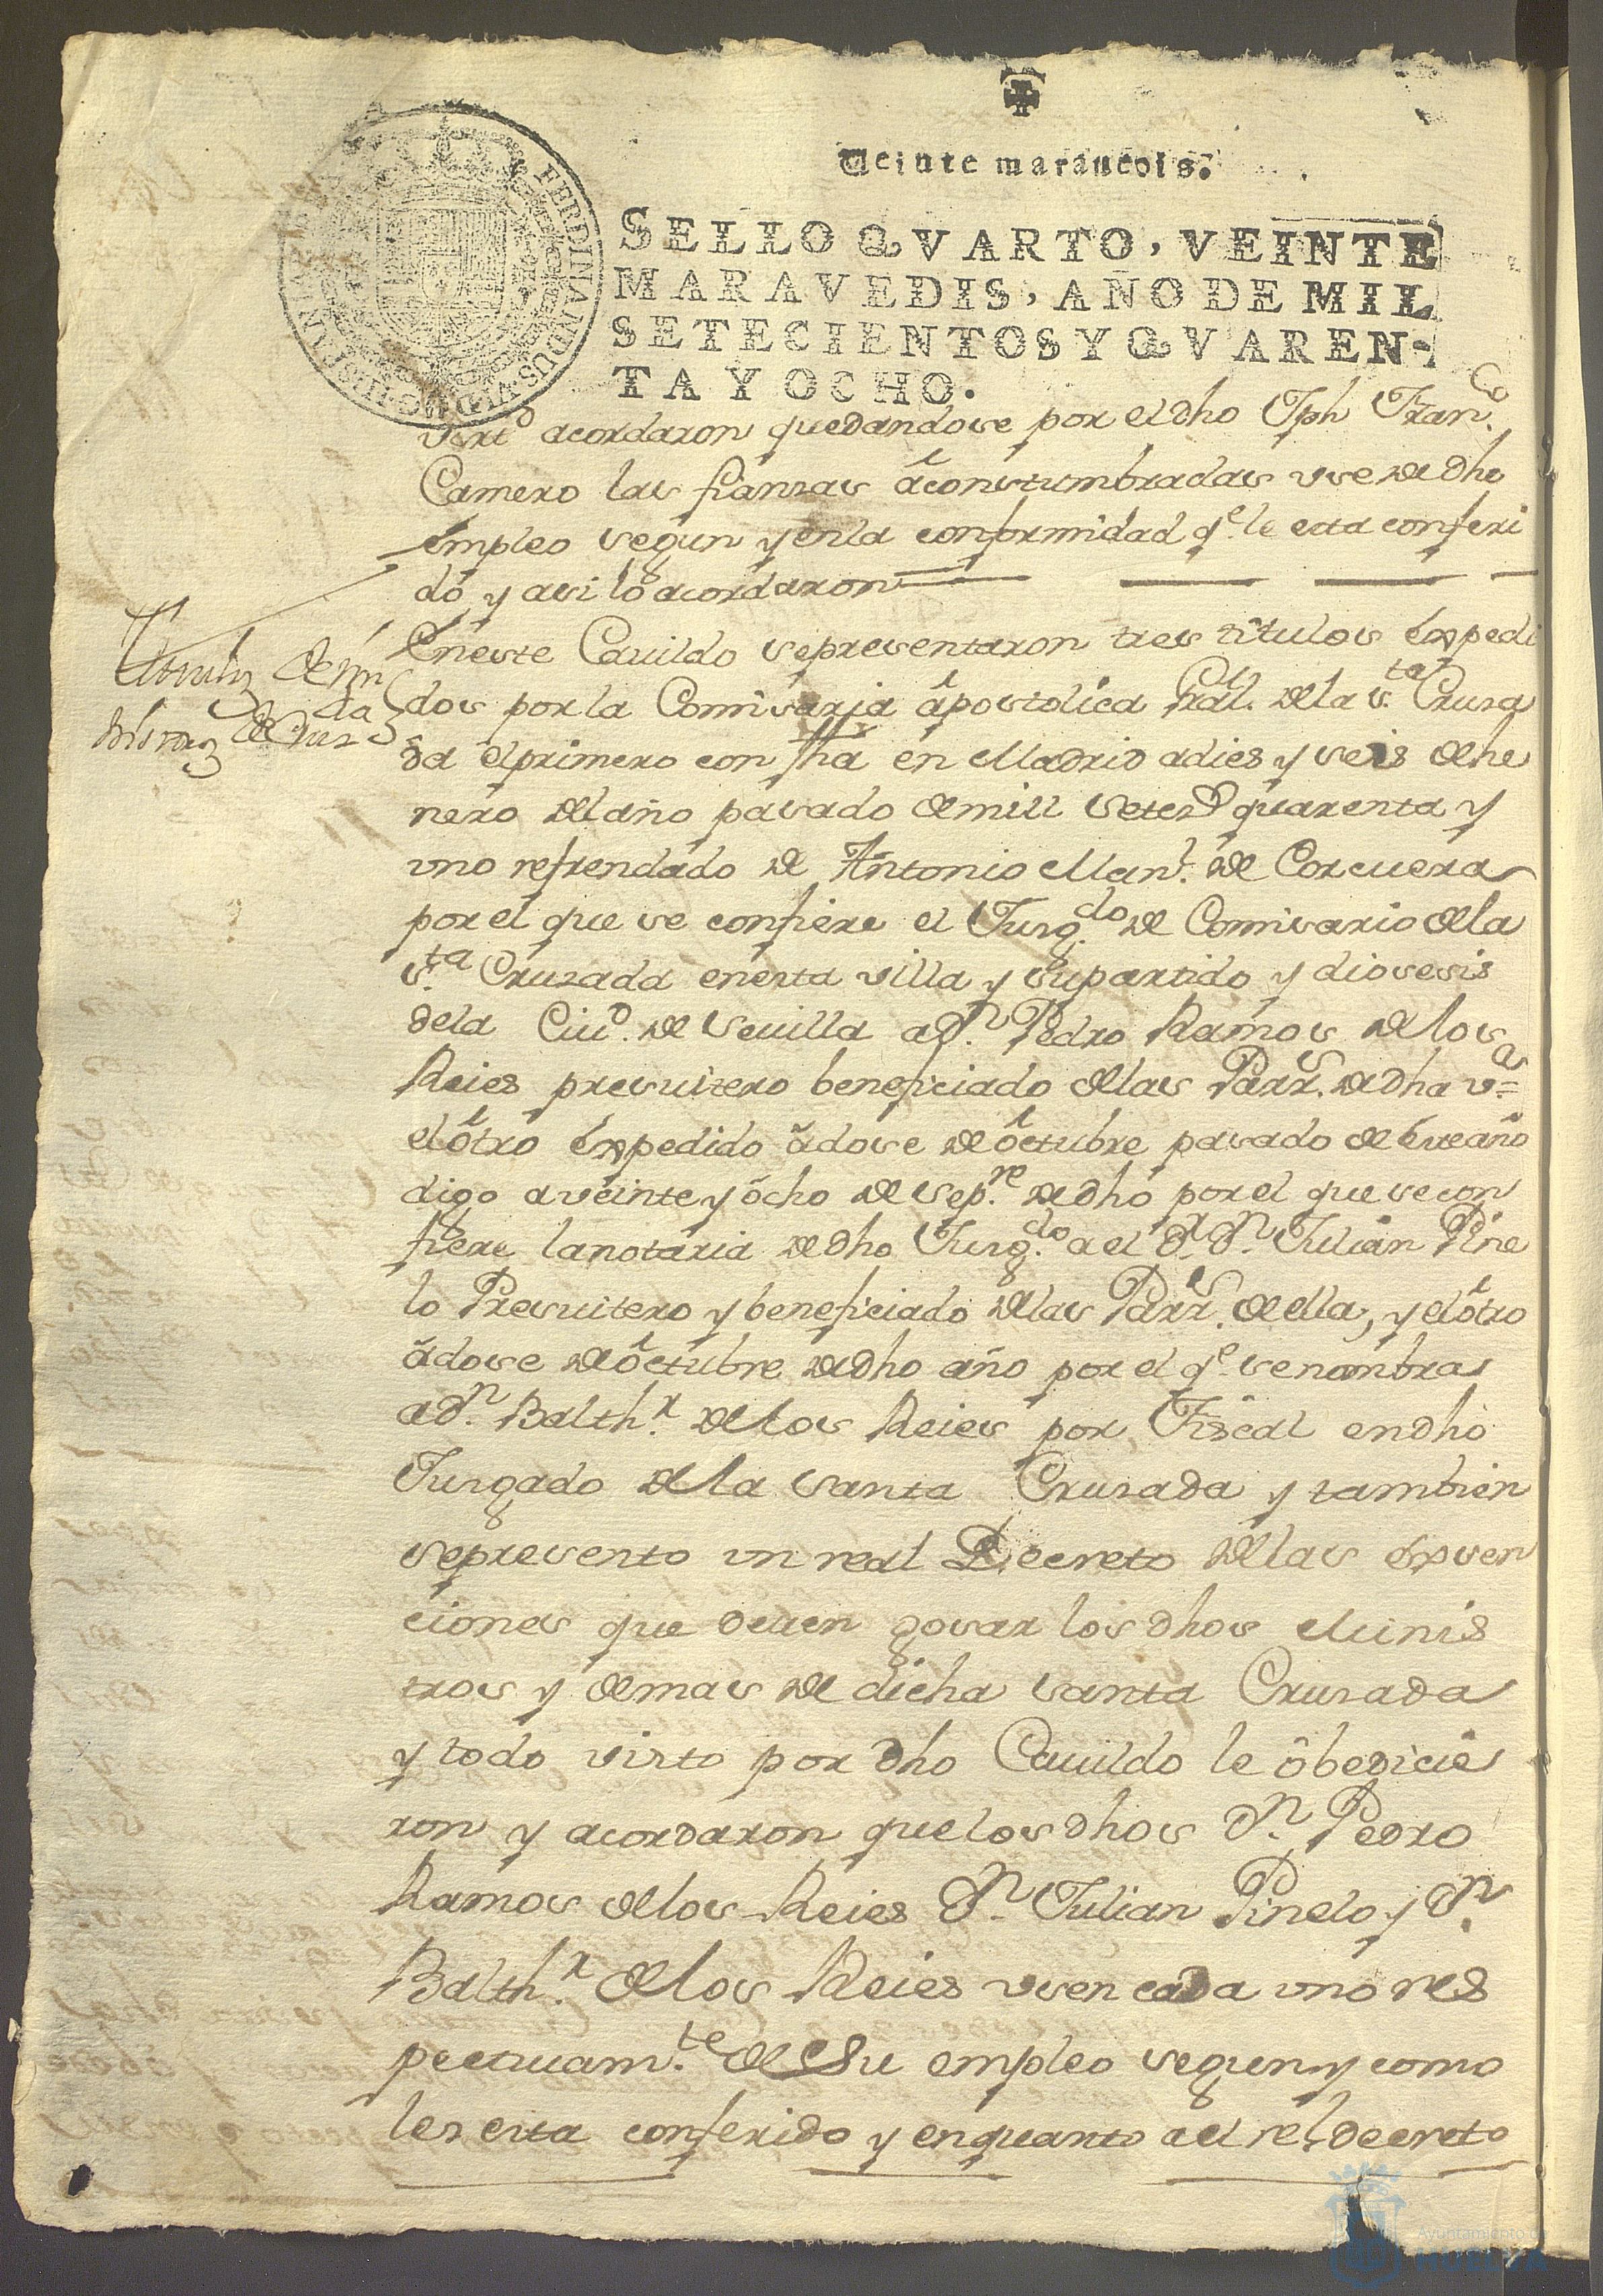 Veinte marauedis.
SELLO QVARTO, VEINTE
MARAVEDIS, AÑO DE MIL
SETECIENTOS Y QVAREN-
TA Y OCHO.
FERDINANDUS VI D G HISPANIAR
acordaron quedandose por el dho Jph Fran.co
Camero las fiansas aconstumbradas use de dho
empleo segun y en la conformidad q.e le esta conferi
do y asi lo acordaron
Titulos de mi
nistros de cruz.da
En este Cauildo se presentaron tres titulos expedi
dos por la Comisaria apostolica Gral. de la s.ta Crusa
da el primero con fha en Madrid a dies y seis de he
nero del año pasado de mill seteso quarenta y
uno refrendado de Antonio Man.l de Corcuera
por el que se confiere el Jusg.do de Comisario de la
s.ta Cruzada en esta villa y su partido y diosesis
de la Ciu.d de Seuilla a D.n Pedro Ramos de los
Reies presuitero beneficiado de las Parr.as de dha v.a
el otro expedido a dose de octubre pasado de este año
digo a veinte y ocho de sep.re de dho por el que se con
fiere la notaria de dho Jusg.do a el D.r D.n Julian Pine
lo Presuitero y beneficiado de las Parr.s de ella, y el otro
a dose de octubre de dho año por el q.e se nombra
a D.n Balth.r de los Reies por Fiscal en dho
Jusgado de la santa Crusada y tambien
se presento un real Decreto de las exsen
ciones que deuen gosar los dhos Minis
tros y demas de dicha santa Crusada
y todo visto por dho Cauildo le obedecie
ron y acordaron que los dhos D.n Pedro
Ramos de los Reies D.n Julian Pinelo y D.n
Balth.r de los Reies usen cada uno res
pectiuam.te de su empleo segun y como
les esta conferido y en quanto a el rel decreto
Ayuntamiento de
HUELVA